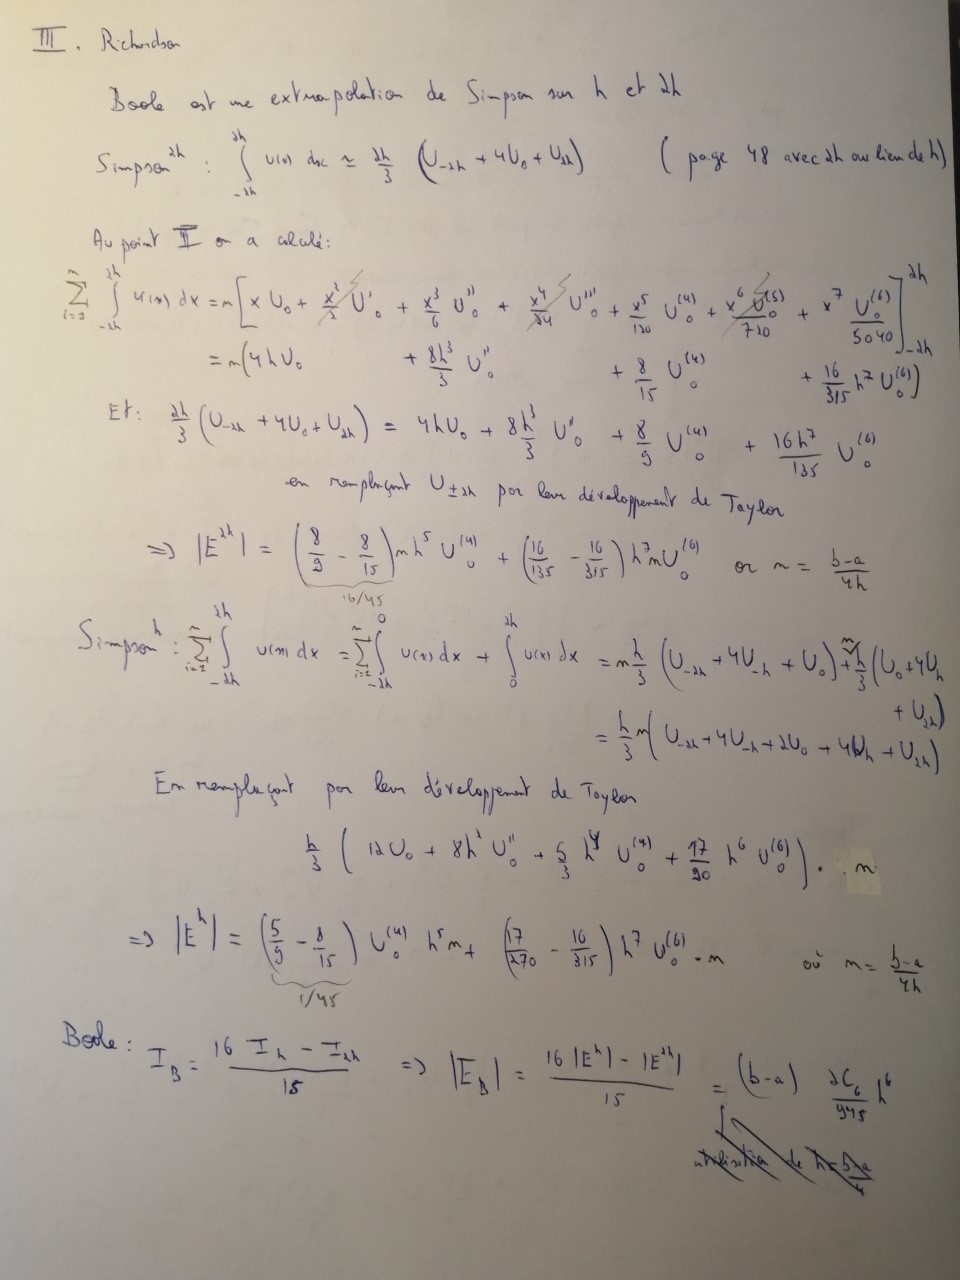 III. Richardson
Boole est une extrapolation de Simpson sur h et 2h
Simpson^{2h} : ∫_{-2h}^{2h} u(x) dx ≃ 2h/3 (U_{-2h} + 4U_0 + U_{2h}) (page 48 avec 2h au lieu de h)
Au point II on a calculé:
∑_{i=1}^{n} ∫_{-2h}^{2h} u(x) dx = n[x U_0 + x²/2 U'_0 + x³/6 U''_0 + x⁴/24 U'''_0 + x⁵/120 U_0^{(4)} + x⁶ U_0^{(5)}/720 + x⁷ U_0^{(6)}/5040]_{-2h}^{2h}
= n(4h U_0 + 8h³/3 U''_0 + 8/15 U_0^{(4)} + 16/315 h⁷ U_0^{(6)})
Et: 2h/3 (U_{-2h} + 4U_0 + U_{2h}) = 4hU_0 + 8h³/3 U''_0 + 8/9 U_0^{(4)} + 16h⁷/135 U_0^{(6)}
en remplaçant U_{±2h} par leur développement de Taylor
=> |E^{2h}| = (8/9 - 8/15) n h⁵ U_0^{(4)} + (16/135 - 16/315) h⁷ n U_0^{(6)} or n = b-a/4h
16/45
Simpson^{h} : ∑_{i=1}^{n} ∫_{-2h}^{2h} u(x) dx = ∑_{i=1}^{n} ∫_{-2h}^{0} u(x) dx + ∫_{0}^{2h} u(x) dx = n h/3 (U_{-2h} + 4U_{-h} + U_0) + n h/3 (U_0 + 4U_h
+ U_{2h})
= h/3 n (U_{-2h} + 4U_{-h} + 2U_0 + 4U_h + U_{2h})
En remplaçant par leur développement de Taylor
h/3 (12U_0 + 8h² U''_0 + 5/3 h⁴ U_0^{(4)} + 17/90 h⁶ U_0^{(6)}) . . n
=> |E^{h}| = (5/9 - 8/15) U_0^{(4)} h⁵ n + (17/270 - 16/315) h⁷ U_0^{(6)} . n où n = b-a/4h
1/45
Boole : I_B = 16 I_h - I_{2h}/15 => |E_B| = 16 |E^{h}| - |E^{2h}|/15 = (b-a) 2C_6/945 h⁶
utilisation de